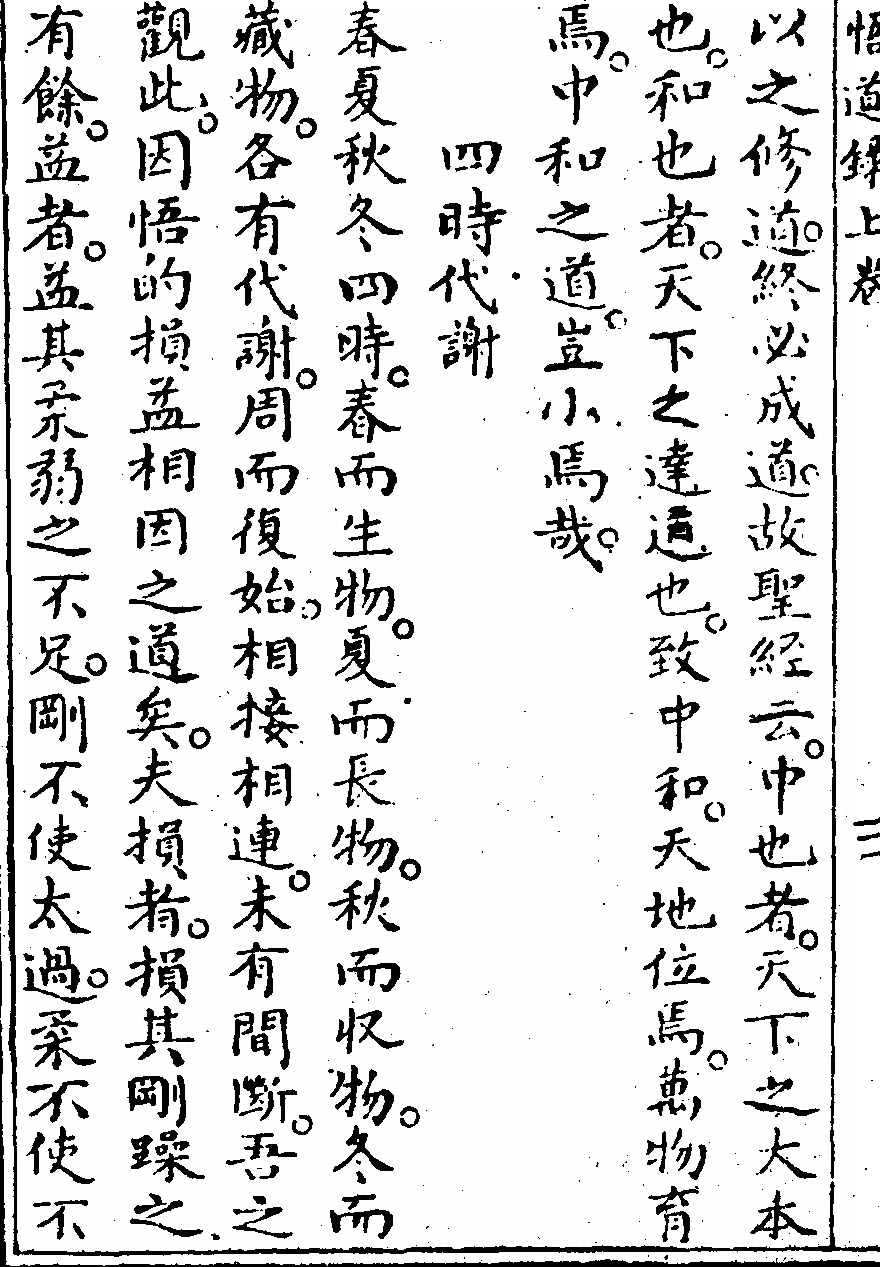 悟道錄上卷 三
以之修道。終必成道。故聖經云。中也者。天下之大本
也。和也者。天下之達道也。致中和。天地位焉。萬物育
焉。中和之道。豈小焉哉。
四時代謝
春夏秋冬四時。春而生物。夏而長物。秋而收物。冬而
藏物。各有代謝。周而復始。相接相連。未有間斷。吾之
觀此。因悟的損益相因之道矣。夫損者。損其剛躁之
有餘。益者。益其柔弱之不足。剛不使太過。柔不使不